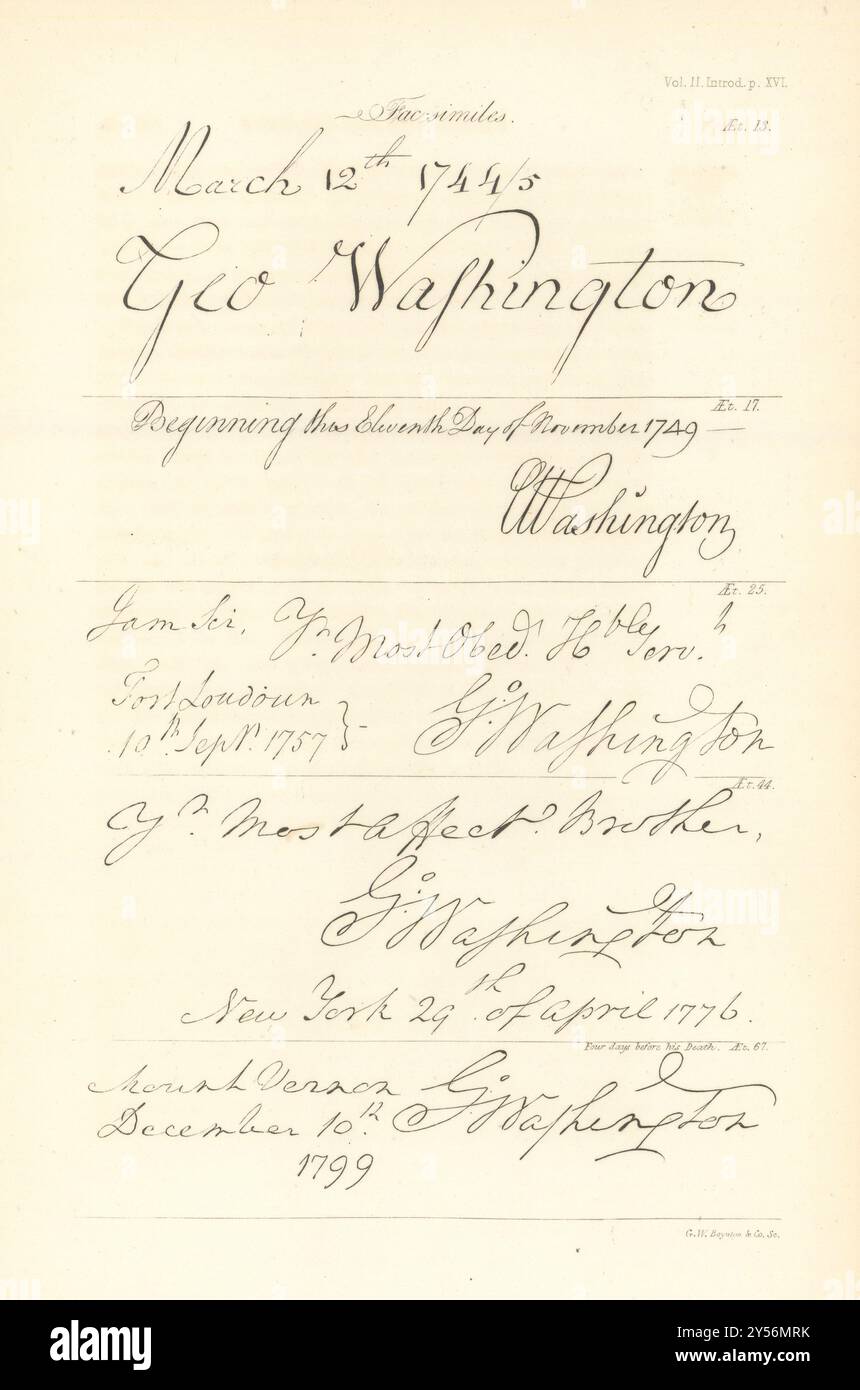 Vol. II. Introd. p. XVI.
Facsimiles.
Æt. 13.
March 12th 1744/5
Geo Washington
Æt. 17.
Beginning this Eleventh Day of November 1749
GWashington
Æt. 25.
I am Sir, Yr. Most Obedt. Hble Servt.
Fort Loudoun
10th. Sepr. 1757
Go: Washington
Æt. 44.
Yr. Most affecte. Brother,
Go: Washington
New York 29th. of April 1776.
Four days before his Death. Æt. 67.
Mount Vernon
December 10th.
1799
Go: Washington
G.W. Boynton & Co. Sc.
alamy
alamy
Image ID: 2Y56MRK
www.alamy.com